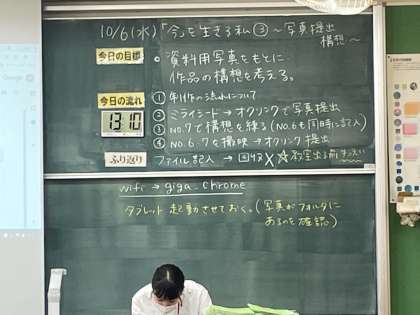 10/6(水)「今を生きる私③ ～写真提出 構想～
今日の目標
・資料用写真をもとに
作品の構想を考える。
今日の流れ
13 10
① 制作の流れについて
② ミライシード→オクリンクで写真提出
③ No.7で構想を練る(No.6も同時に記入)
④ No.6.7を撮映→オクリンク提出
ふり返り
ファイル記入 → 回収X
wifi → giga-chrome
タブレット 起動させておく。(写真がフォルダに
あるのを確認)